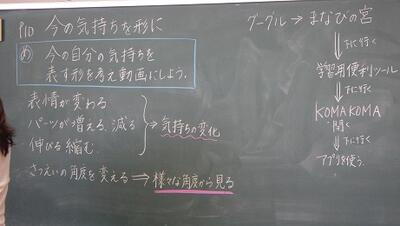 P10 今の気持ちを形に
め 今の自分の気持ちを
表す形を考え動画にしよう。
表情が変わる
パーツが増える、減る
伸びる縮む
⇒気持ちの変化
さつえいの角度を変える⇒様々な角度から見る
グーグル→まなびの宮
⇓下に行く
学習用便利ツール
⇓下に行く
KOMAKOMA
開く
⇓下に行く
アプリを使う。